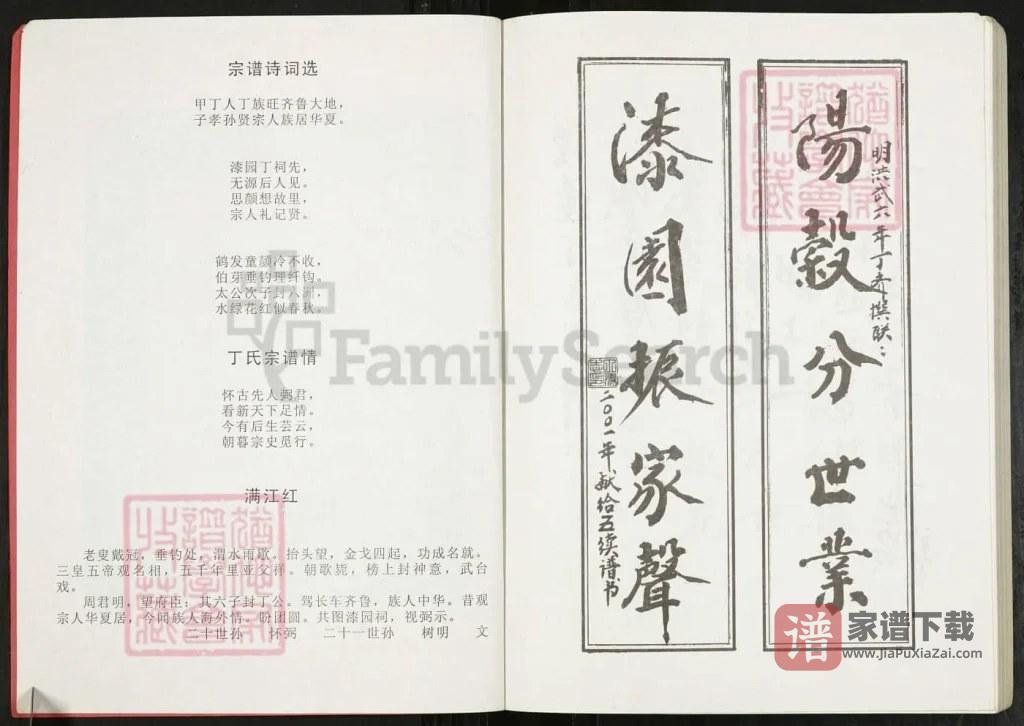 宗谱诗词选
甲丁人丁族旺齐鲁大地，
子孝孙贤宗人族居华夏。
漆园丁祠先，
无源后人见。
思颜想故里，
宗人礼记贤。
鹤发童颜冷不收，
伯芽垂钓理纤钩。
太公次子封八洲，
水绿花红似春秋。
丁氏宗谱情
怀古先人弼君，
看新天下足情。
今有后生芸云，
朝暮宗史觅行。
满江红
老叟戴冠，垂钓处，渭水雨歇。抬头望，金戈四起，功成名就。
三皇五帝观名相，五千年里亚父样。朝歌毙，榜上封神意，武台
戏。
周君明，望府臣；其六子封丁公。驾长车齐鲁，族人中华。昔观
宗人华夏居，今闻族人海外情。盼团圆。共图漆园祠，视弼示。
二十世孙 怀弼 二十一世孙 树明 文
明洪武六年丁斉撰联：
陽穀分世業
漆園振家聲
二〇〇一年献给五续谱书
FamilySearch
谱
家谱下载
www.JiaPuXiaZai.com